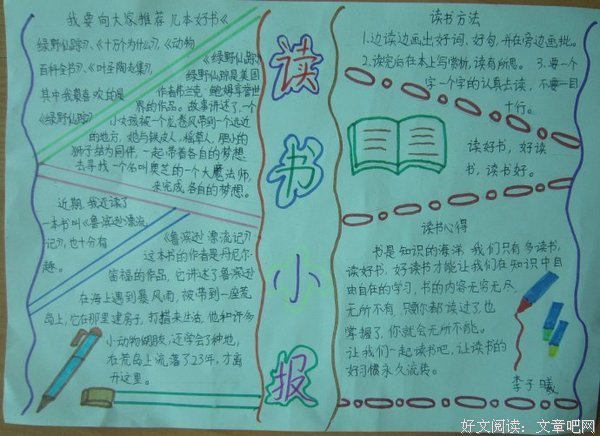 我要向大家推荐几本好书《
绿野仙踪》、《十万个为什么》、《动物
百科全书》、《叶圣陶选集》,
其中我最喜欢的是
《绿野仙踪》
《绿野仙踪》
绿野仙踪是美国
作者弗兰克·鲍姆享誉世
界的作品。故事讲述了,一个
小女孩被一个龙卷风带到一个遥远
的地方,她与铁皮人、稻草人、胆小的
狮子结为同伴,一起带着各自的梦想
去寻找一个名叫奥芝的一个大魔法师,
来完成各自的梦想。
近期,我还读了
一本书叫《鲁滨逊漂流
记》,也十分有
趣。
《鲁滨逊漂流记》
这本书的作者是丹尼尔·
笛福的作品,它讲述了鲁滨逊
在海上遇到暴风雨,被带到一座荒
岛上,它在那里建房子,打猎来生活,他和许多
小动物做朋友,还学会了种地,
在荒岛上流落了23年,才离
开这里。
读书小报
读书方法
1.边读边画出好词、好句,并在旁边画批。
2.读完后在本上写赏析,读有所思。3.要一个
字一个字的认真去读,不要一目
十行。
读好书,好读
书,读书好。
读书心得
书是知识的海洋,我们只有多读书,
读好书,好读书才能让我们在知识中自
由自在的学习,书的内容无穷无尽,
无所不有,只要你都读过了,也
掌握了,你就会无所不能。
让我们一起读书吧,让读书的
好习惯永久流传。
李子曦
好文阅读:文章吧网